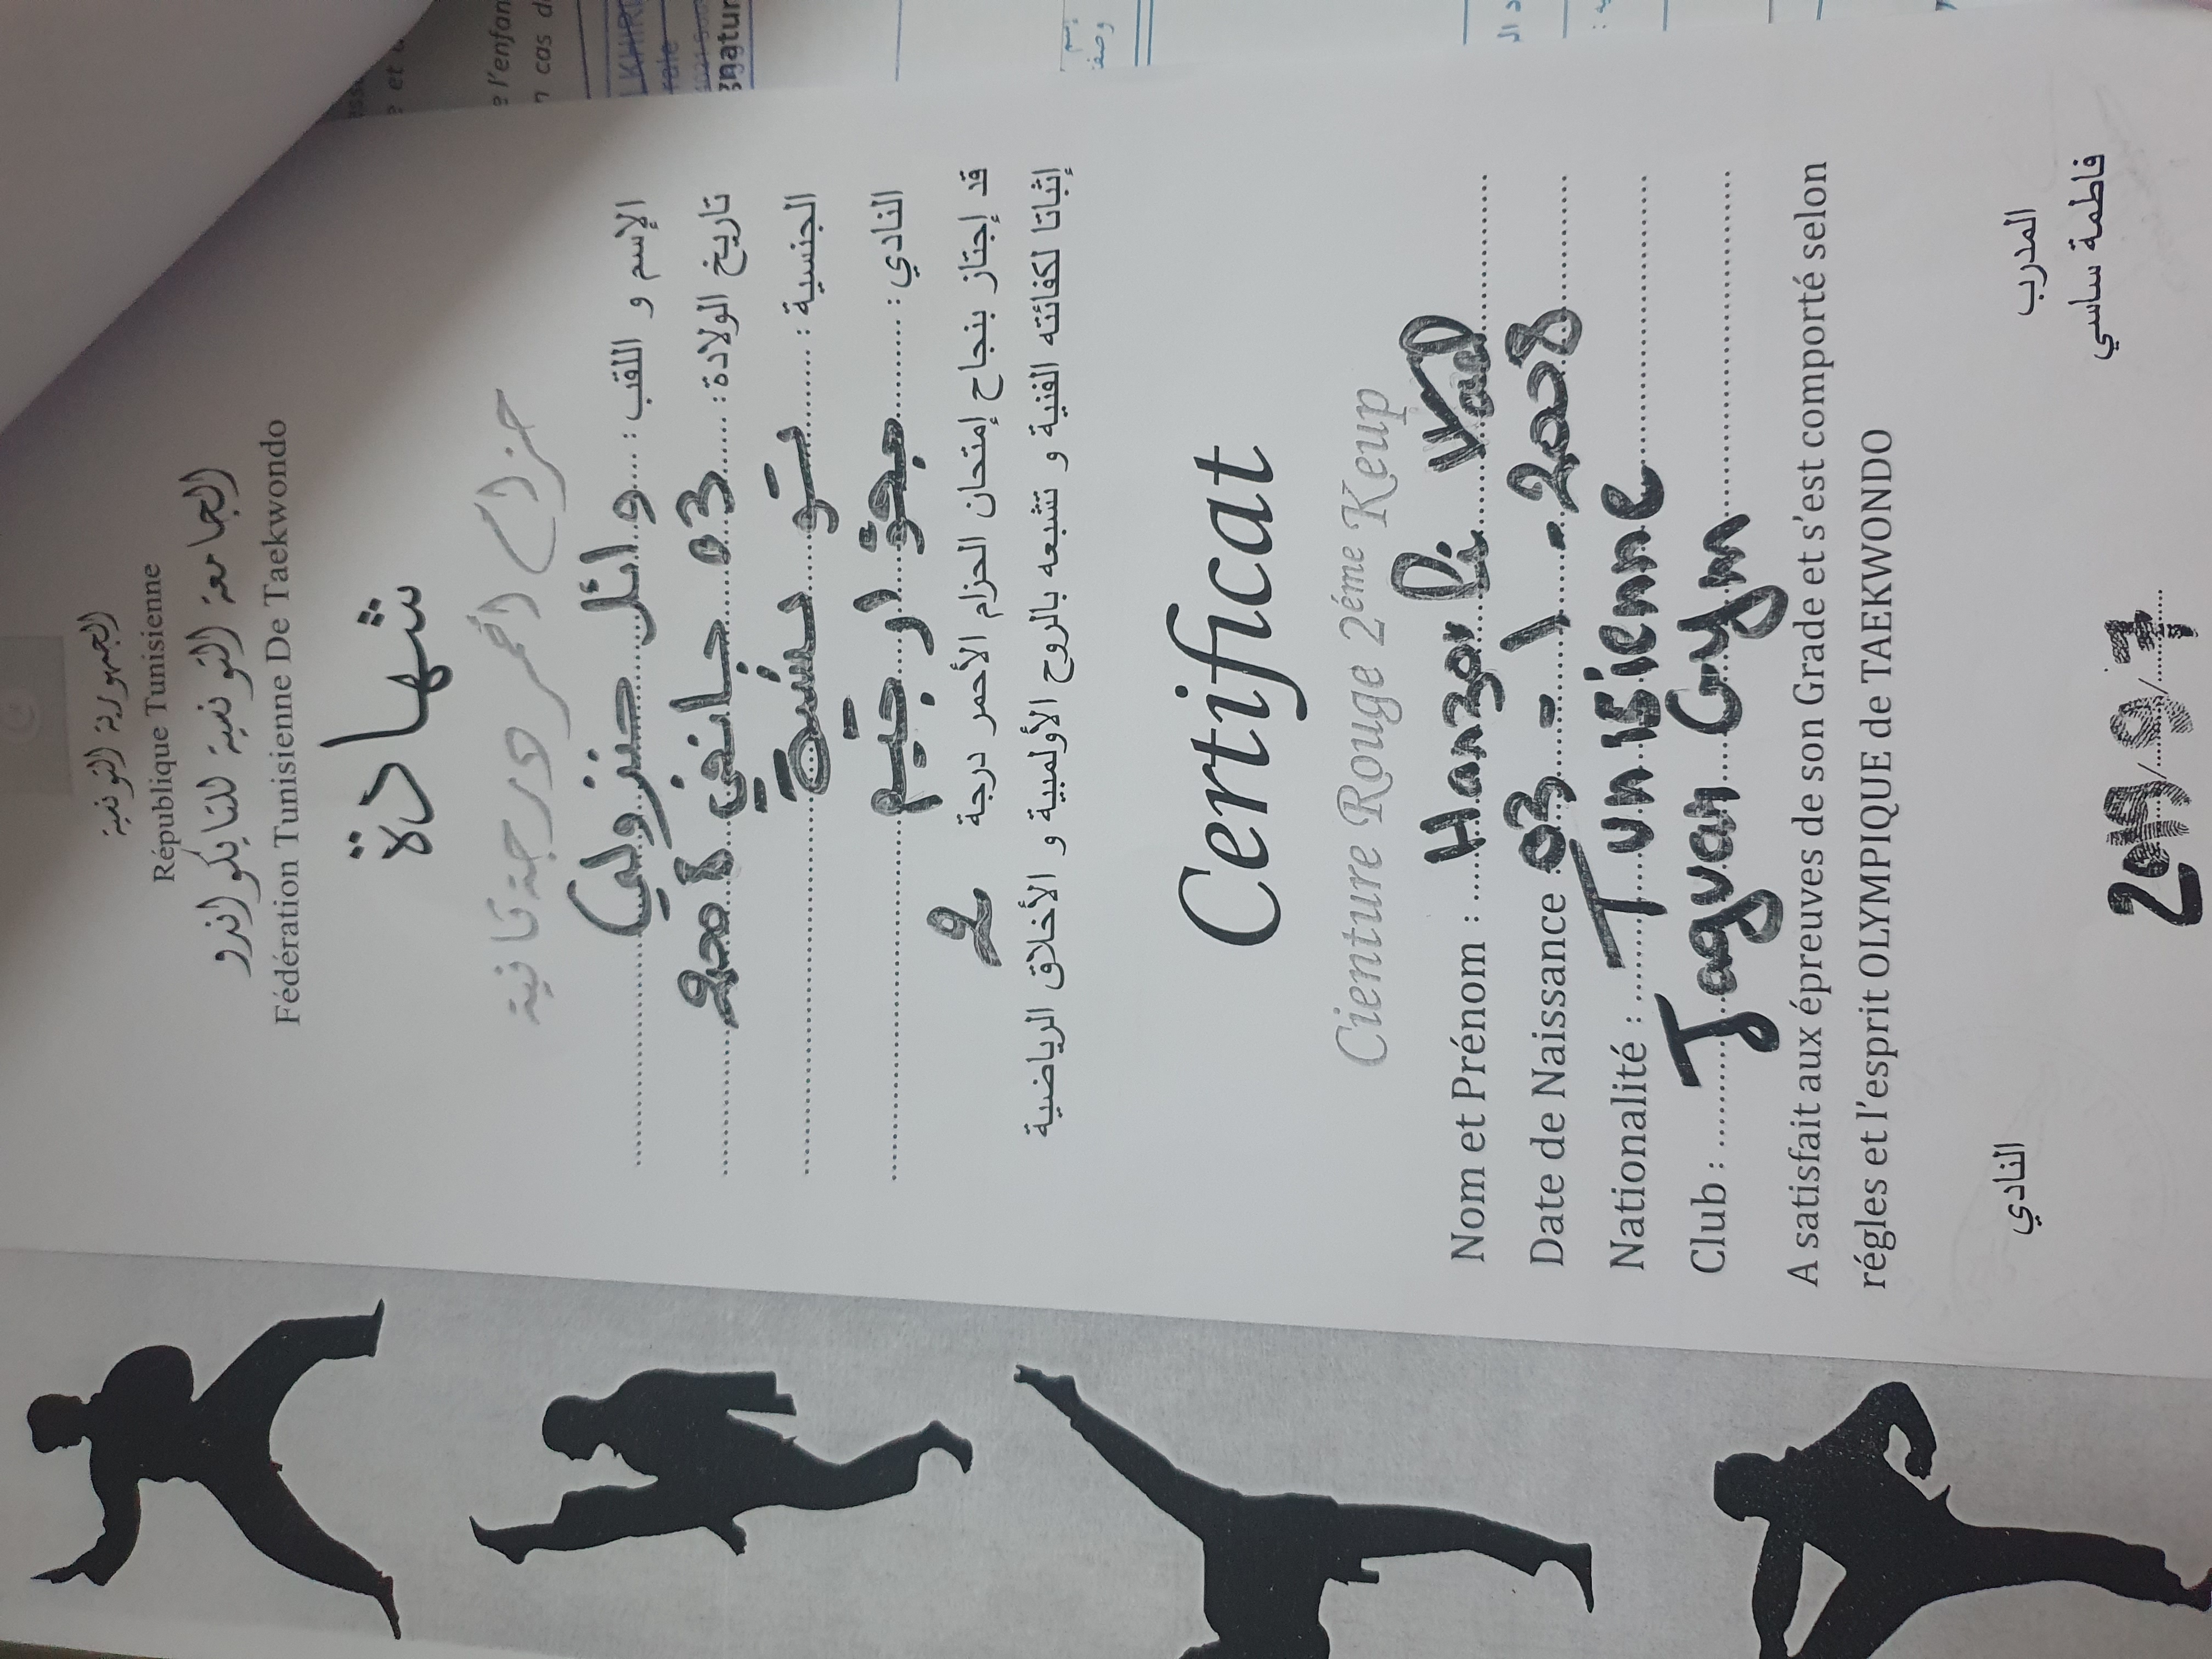 الجمهورية التونسية
République Tunisienne
الجامعة التونسية للتايكواندو
Fédération Tunisienne De Taekwondo
شهادة
حزام أحمر درجة ثانية
الإسم و اللقب : وائل حنزولي
تاريخ الولادة : 03 جانفي 2008
الجنسية : تونسية
النادي :
قد إجتاز بنجاح إمتحان الحزام الأحمر درجة 2
إثباتا لكفائته الفنية و تشبعه بالروح الأولمبية و الأخلاق الرياضية
Certificat
Cienture Rouge 2éme Keup
Nom et Prénom : Hanzouli Wael
Date de Naissance 03 - 1 - 2008
Nationalité : Tunisienne
Club : Jaguar Gym
A satisfait aux épreuves de son Grade et s'est comporté selon
régles et l'esprit OLYMPIQUE de TAEKWONDO
النادي
المدرب
فاطمة ساسي